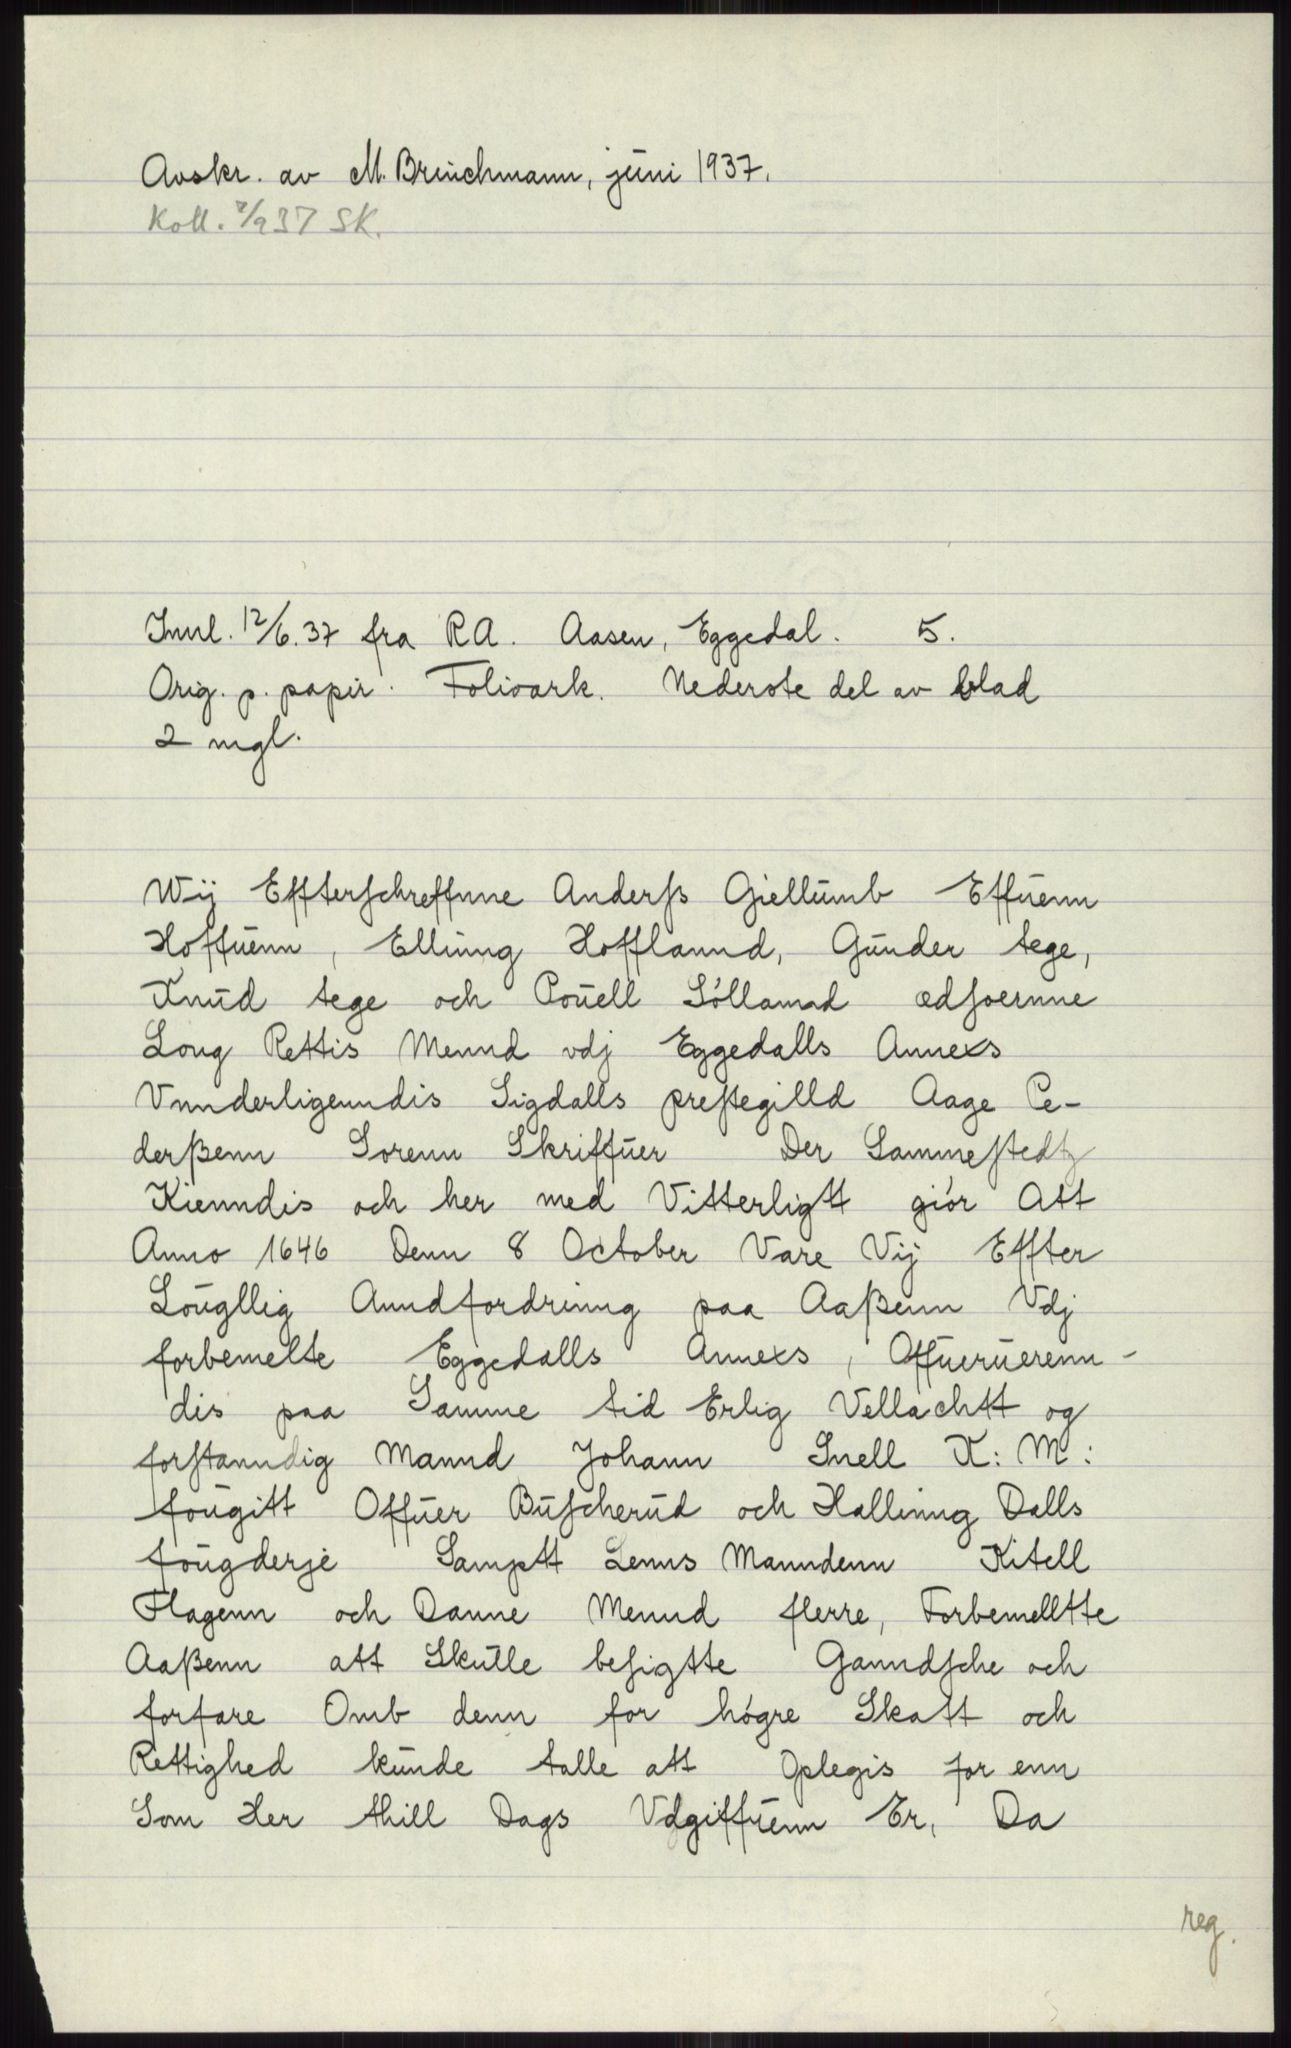 Avskr. av M. Brinchmann, juni 1937.
Koll. 2/9 37 SK.
Innl. 12/6.37 fra RA. Aasen, Eggedal. 5.
Orig. p. papir. Folioark. Nederste del av blad
2 mgl.
Wij Effterschreffnne Anderss Giellumb Effuenn
Hoffuenn, Ellinng Hofflannd, Gunder tege,
Knud tege och Pouell Sóllannd edsoernne
Loug Rettis Mennd vdj Eggedalls Annexs
Vnnderligenndis Sigdalls prestegilld Aage Pe-
derßenn Sorenn Skriffuer Der Sammestedtz
Kienndis och her med Vitterligtt giór Att
Anno 1646 Denn 8 October Vare Vij Effter
Lougllig Anndfordrinng paa Aaßenn Vdj
forbemelte Eggedalls Annexs, Offueruerenn-
dis paa Samme tid Erlig Vellachtt og
forstanndig Mannd Johann Snell K: M:
fougitt Offuer Buscherud och Hallinng Dalls
fougderje Samptt Lenns Manndenn Kitell
Hagenn och Danne Mennd flerre, Forbemelltte
Aaßenn att Skulle besigtte Ganndsche och
forfare Omb denn for hógre Skatt och
Rettighed kunde talle att Oplegis for enn
Som Her thill Dags Vdgiffuenn Er, Da
reg.